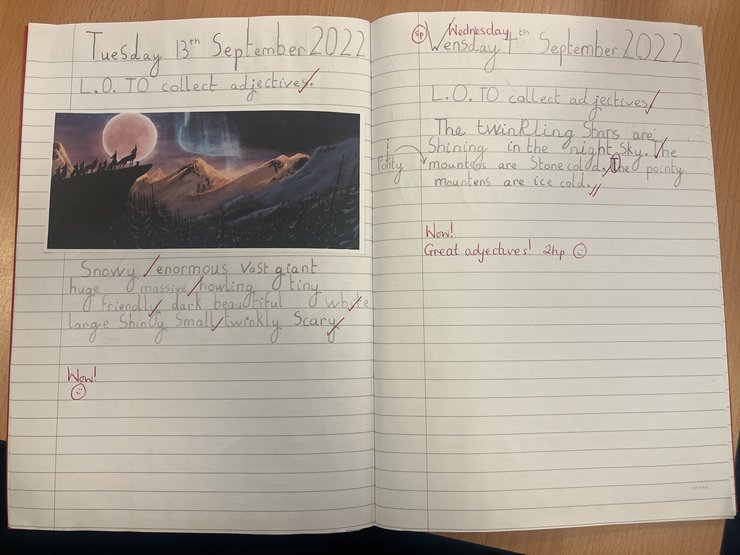 Tuesday 13th September 2022
L.O. TO collect adjectives.
Snowy enormous Vast giant
huge massive howling tiny
friendly dark beautiful white
large Shindy Small twinkly Scary
Wow!
sp Wednesday
Wensday th September 2022
L.O. TO collect adjectives
The twinkling Stars are
Shining in the night Sky. The
mountens are Stone cold. The pointy
mountens are ice cold.
Wow!
Great adjectives! 2hp